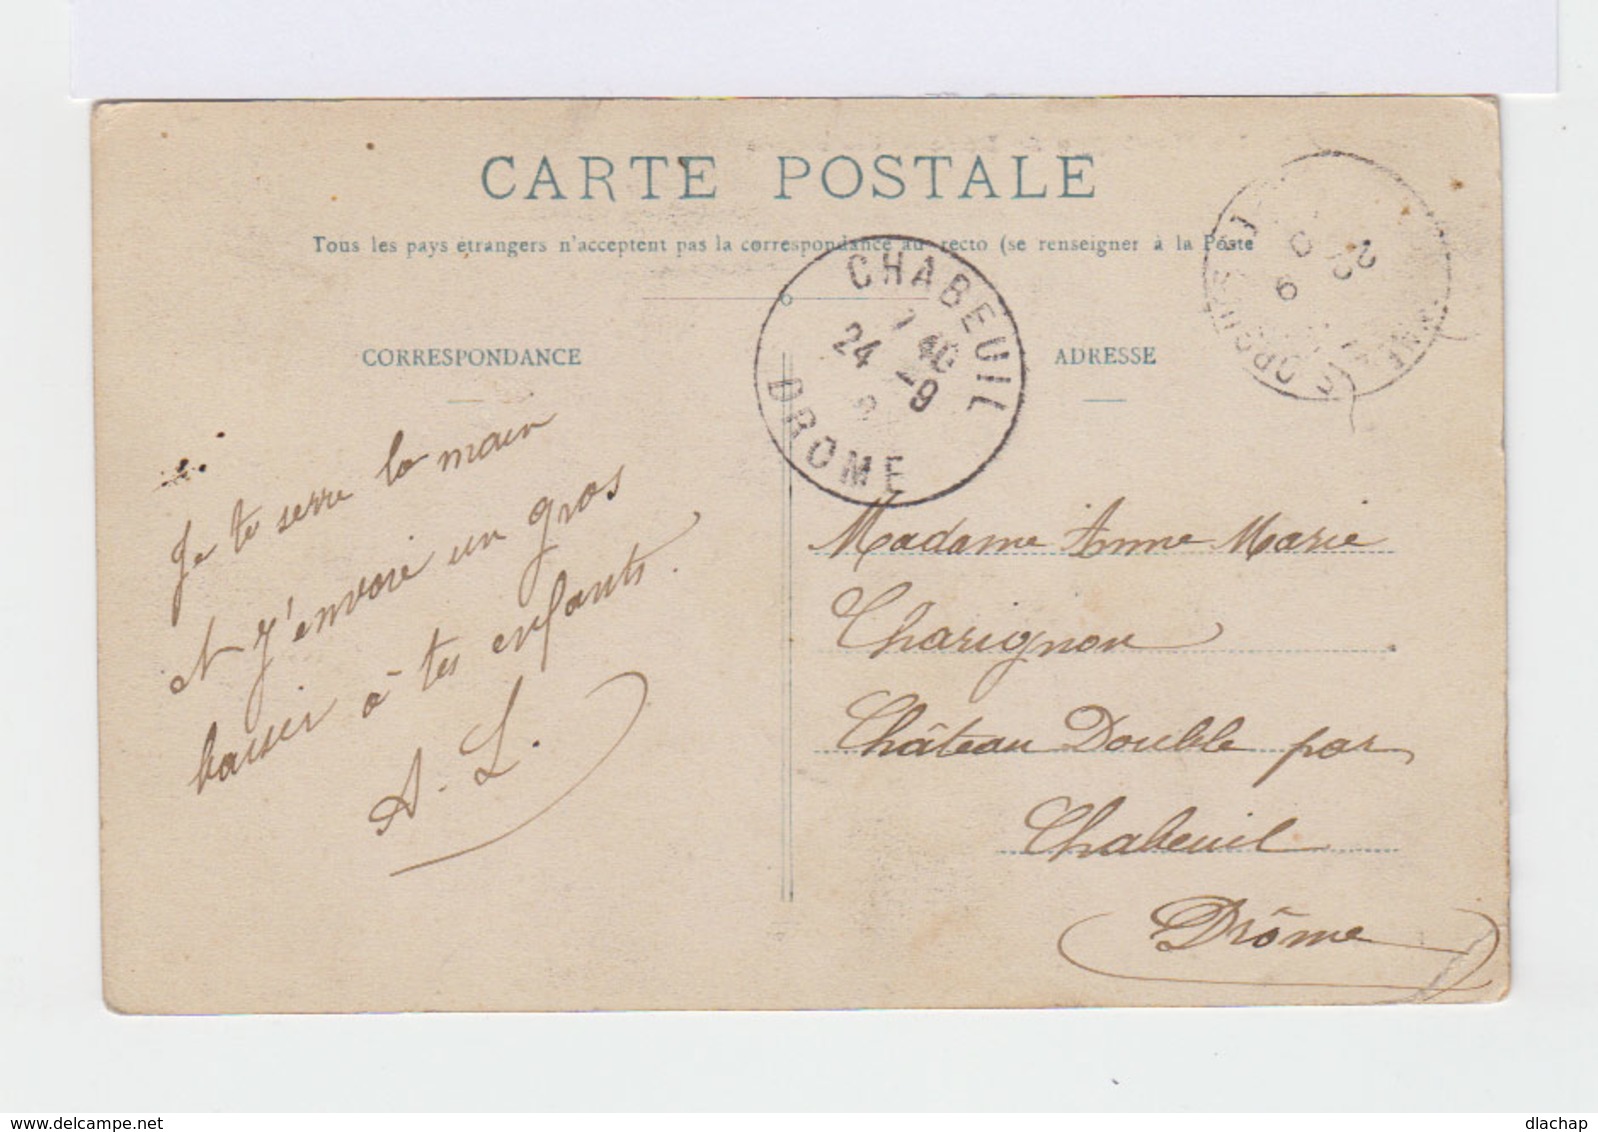 CARTE POSTALE
Tous les pays étrangers n'acceptent pas la correspondance au recto (se renseigner à la Poste
CORRESPONDANCE
ADRESSE
CHABEUIL
7 40
24 -9
DROME
Je te serre la main
et j'envoie un gros
baiser à tes enfants.
A. L.
Madame Anne Marie
Charignon
Château Double par
Chabeuil
Drôme
delcampe.net
dlachap